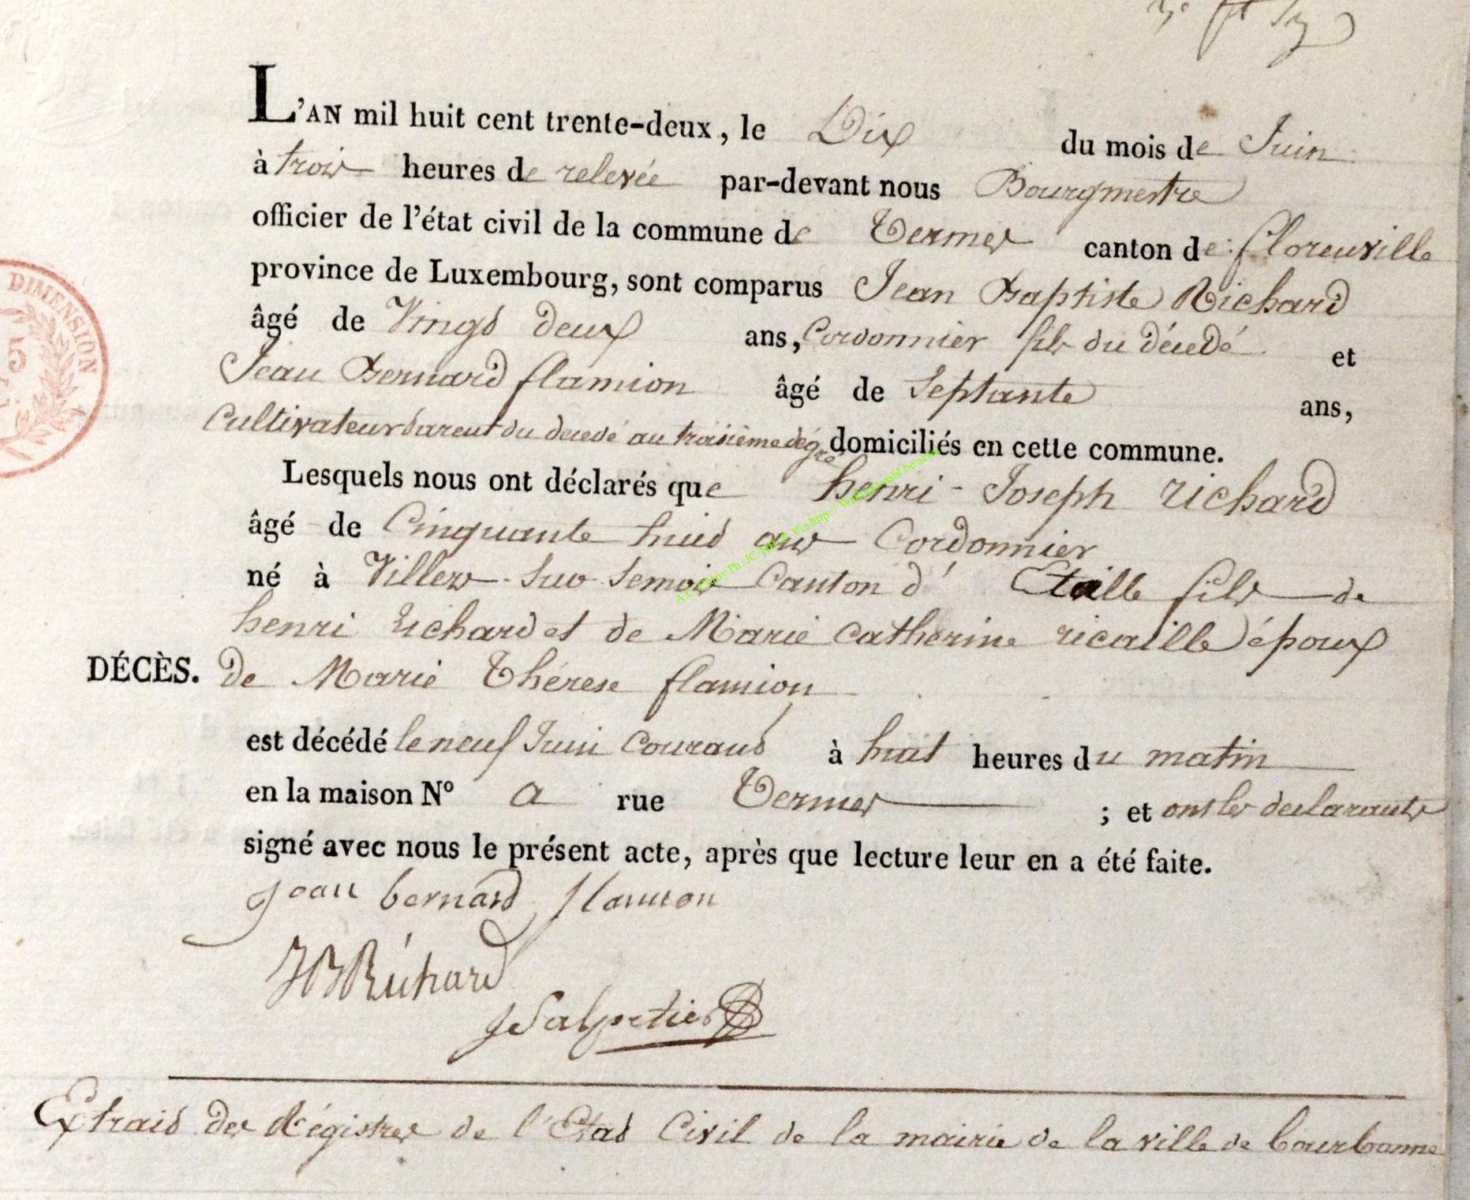 L'AN mil huit cent trente-deux, le Dix du mois de Juin
à trois heures de relevée par-devant nous Bourgmestre
officier de l'état civil de la commune de Termes canton de florenville
province de Luxembourg, sont comparus Jean Baptiste Richard
âgé de Vingt deux ans, Cordonnier fils du décedé et
Jean Bernard flamion âgé de Septante ans,
Cultivateur parent du decedé au troisieme dégré domiciliés en cette commune.
Lesquels nous ont déclarés que henri-Joseph richard
âgé de Cinquante huit ans Cordonnier
né à Villers-Sur-Semois Canton d'Etalle fils de
henri richard et de Marie catherine ricaille époux
DÉCÈS. de Marie Thérese flamion
est décédé le neuf Juin Courant à huit heures du matin
en la maison Nº a rue Termes ; et ont les declarants
signé avec nous le présent acte, après que lecture leur en a été faite.
Jean bernard flamion
JB Richard
J Salpetier
Extrait des Régistres de l'Etat Civil de la mairie de la ville de bourbonne
DIMENSION
5